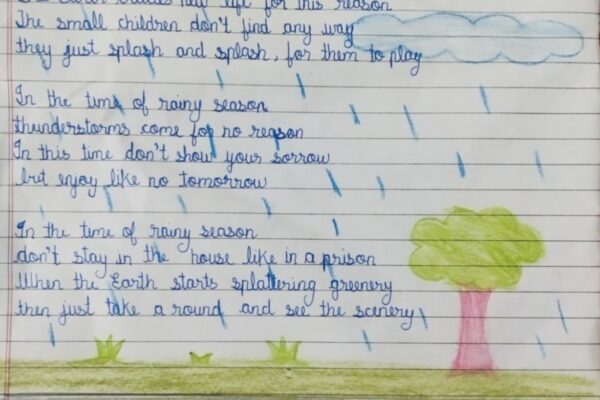 for this reason
The small children don't find any way
they just splash and splash, for them to play
In the time of rainy season
thunderstorms come for no reason
In this time don't show your sorrow
but enjoy like no tomorrow
In the time of rainy season
don't stay in the house like in a prison
When the Earth starts splattering greenery
then just take a round and see the scenery